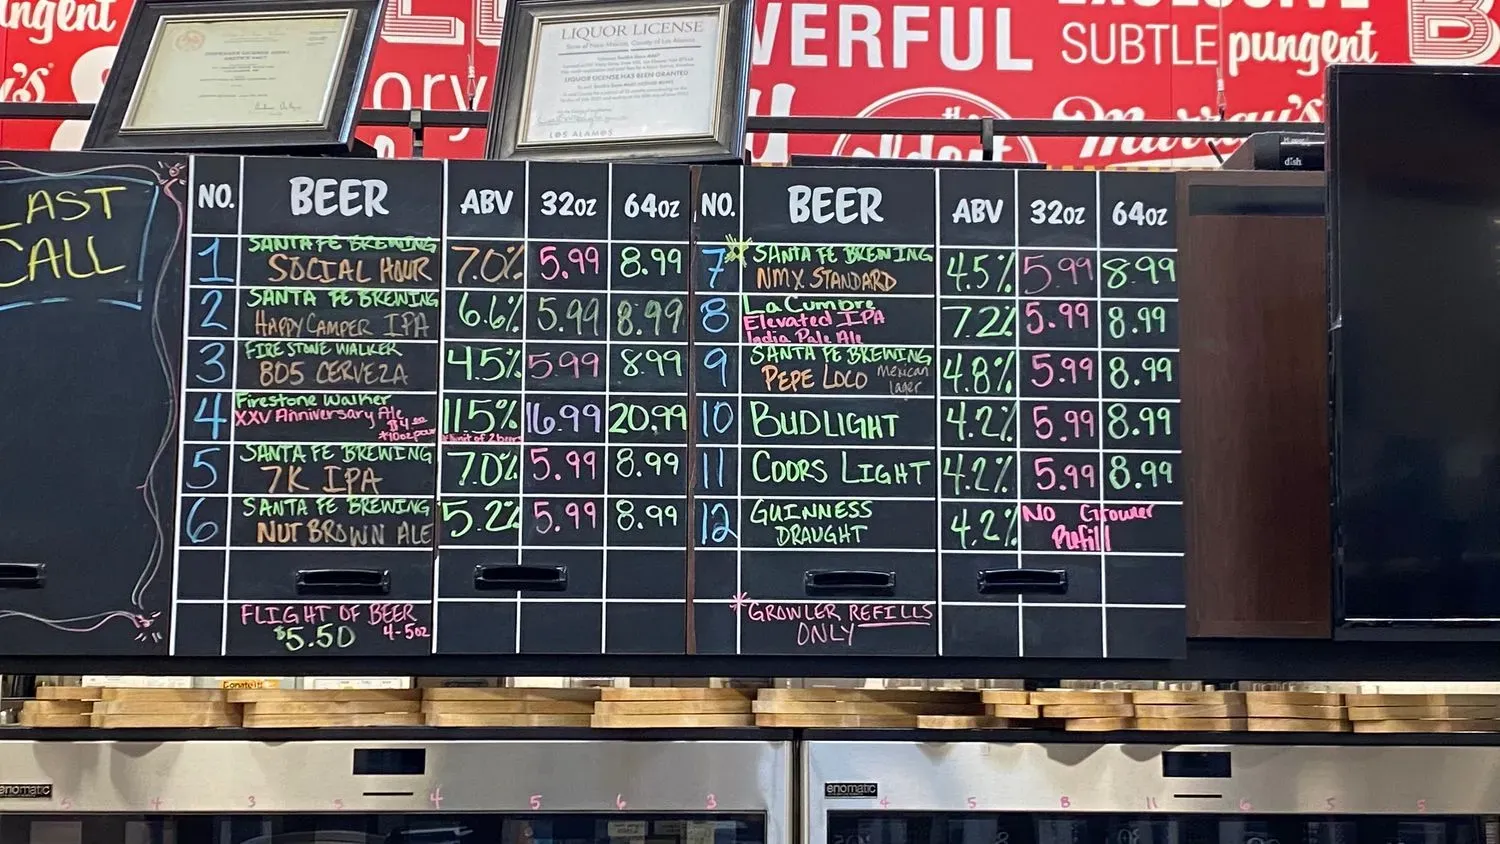 ngent
VERFUL
SUBTLE pungent
ory
the
Murray's
LIQUOR LICENSE
State of New Mexico, County of Los Alamos
LIQUOR LICENSE HAS BEEN GRANTED
LOS ALAMOS
dish
LAST
CALL
NO. BEER ABV 32oz 64oz
1 SANTA FE BREWING
SOCIAL HOUR 7.0% 5.99 8.99
2 SANTA FE BREWING
HAPPY CAMPER IPA 6.6% 5.99 8.99
3 FIRESTONE WALKER
805 CERVEZA 4.5% 5.99 8.99
4 Firestone Walker
XXV Anniversary Ale 11.5% 16.99 20.99
$4.00
*10oz pour *limit of 2 beers
5 SANTA FE BREWING
7K IPA 7.0% 5.99 8.99
6 SANTA FE BREWING
NUT BROWN ALE 5.2% 5.99 8.99
FLIGHT OF BEER
$5.50 4-5oz
NO. BEER ABV 32oz 64oz
7 SANTA FE BREWING
NMX STANDARD 4.5% 5.99 8.99
8 La Cumbre
Elevated IPA
India Pale Ale 7.2% 5.99 8.99
9 SANTA FE BREWING
PEPE LOCO Mexican
lager 4.8% 5.99 8.99
10 BUDLIGHT 4.2% 5.99 8.99
11 COORS LIGHT 4.2% 5.99 8.99
12 GUINNESS
DRAUGHT 4.2% NO Growler
Refill
*GROWLER REFILLS
ONLY
Donate it!
enomatic
5 4 3 5 4 5 6 3
enomatic
4 5 8 11 6 5 5